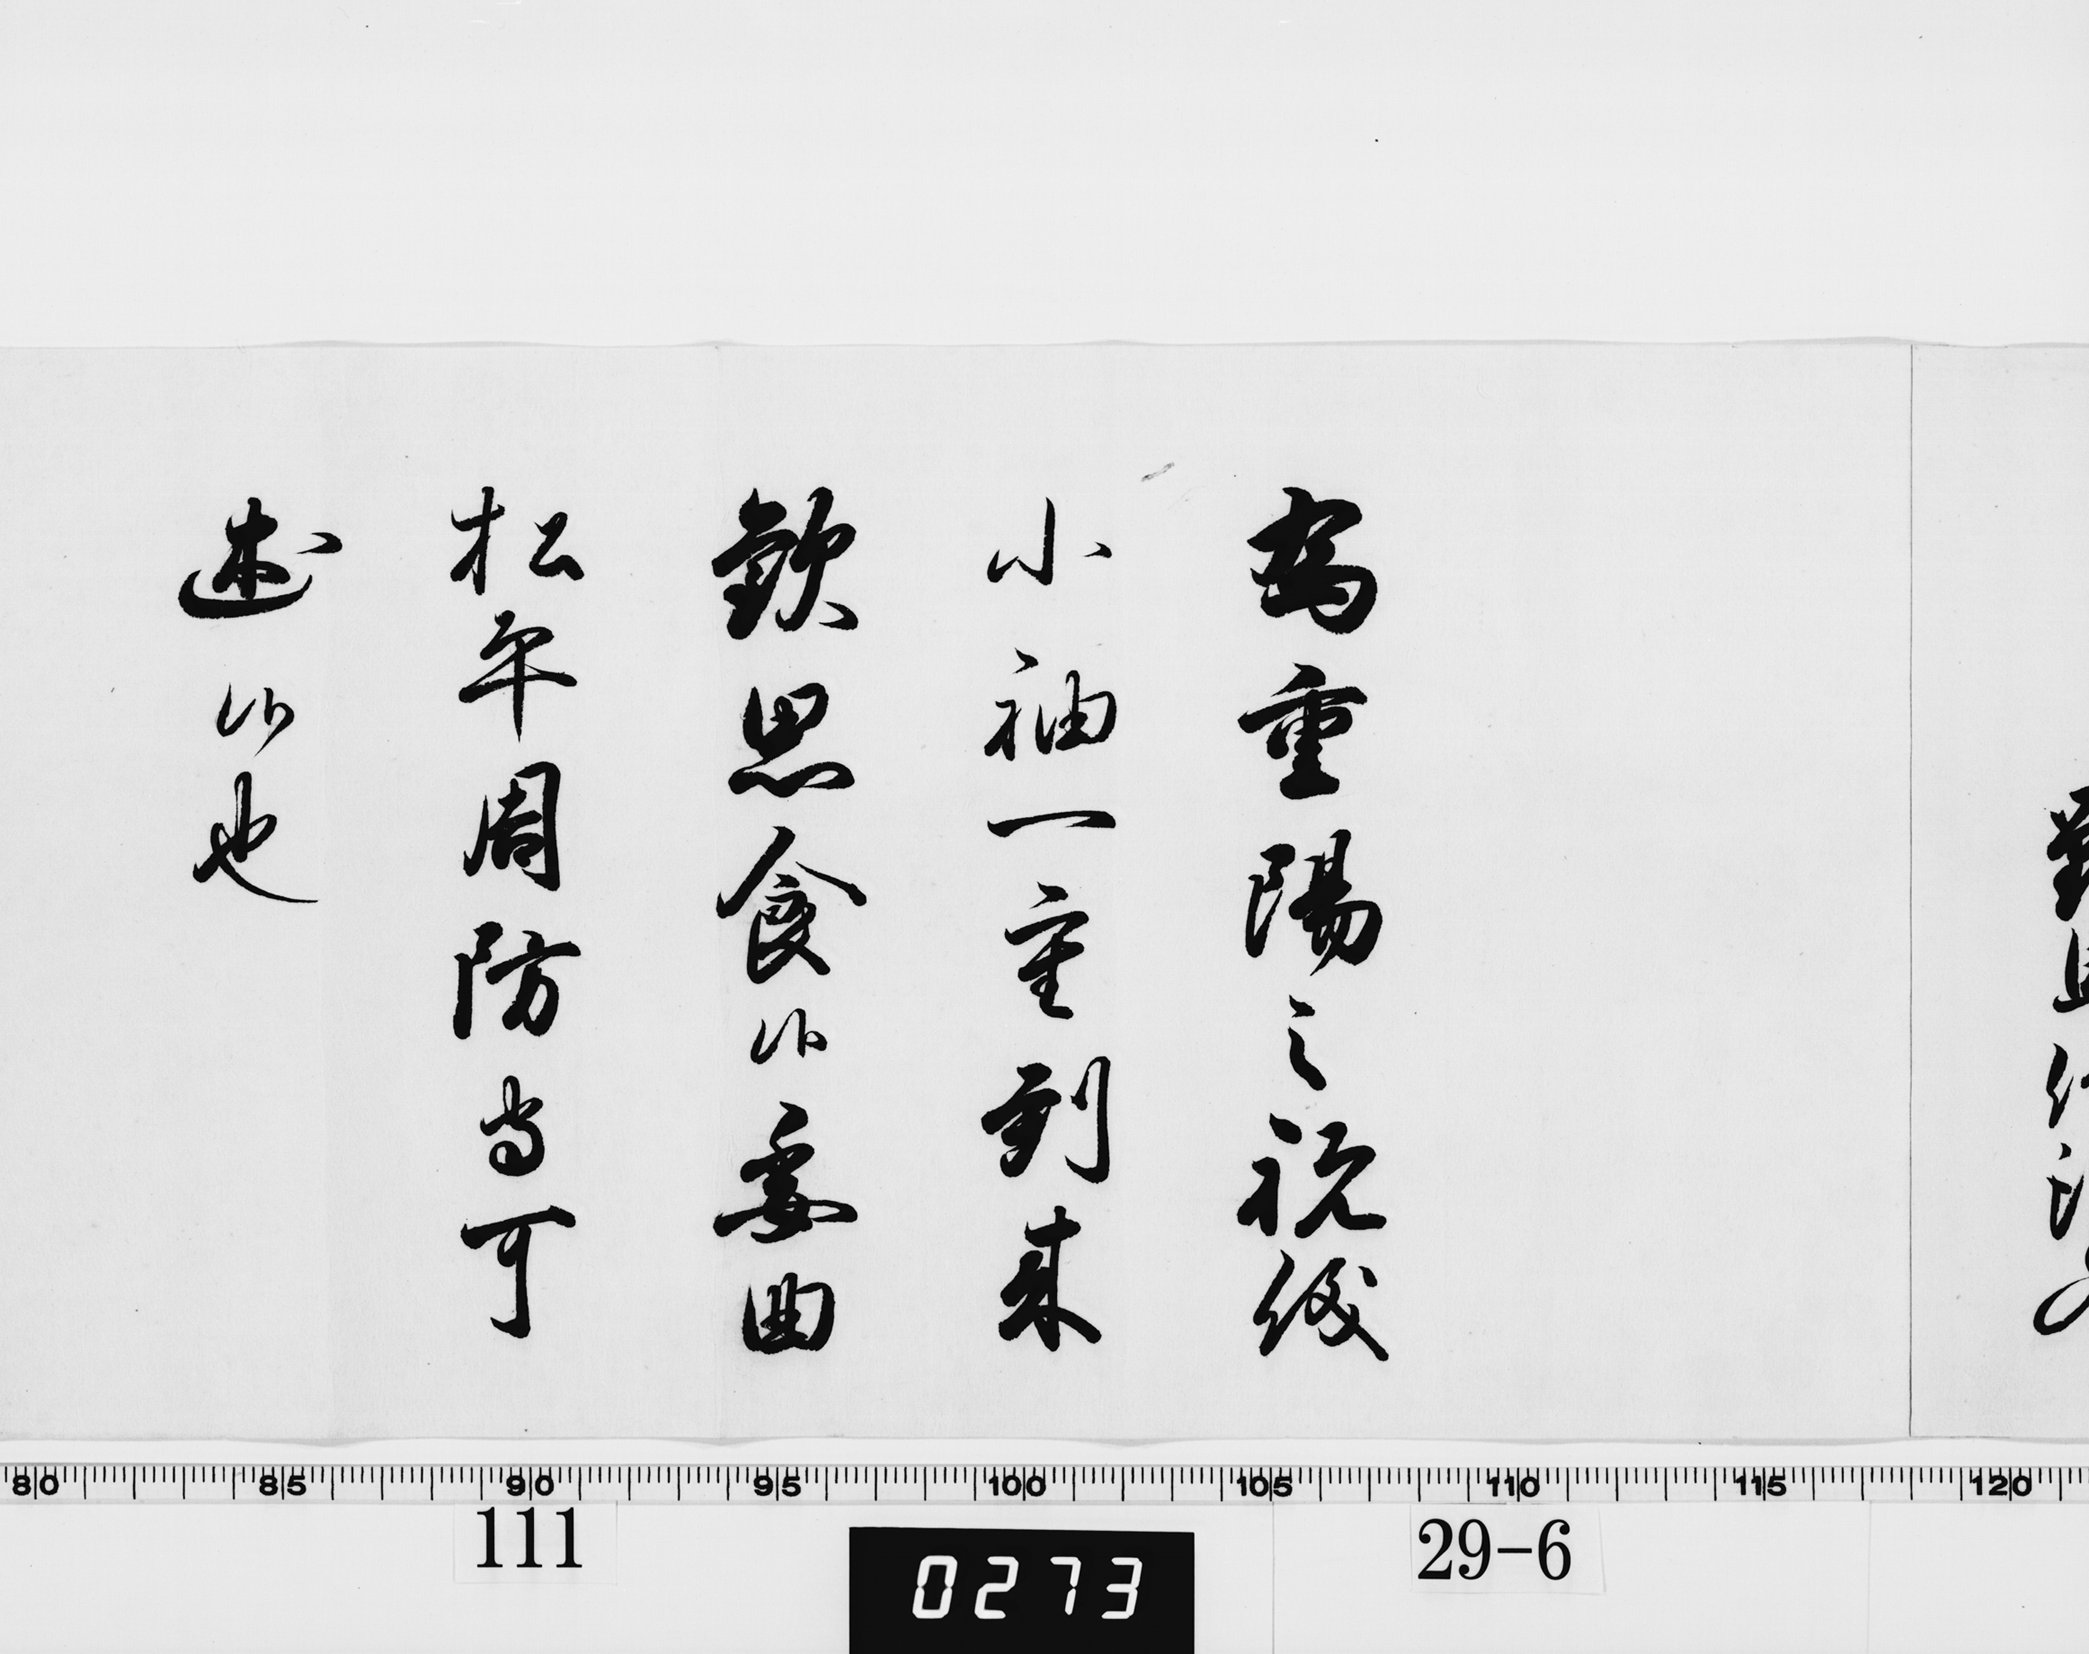 為重陽之祝儀
小袖一重到来
歓思食候委曲
松平周防守可
述候也
80 85 90 95 100 105 110 115 120
111
0273
29-6